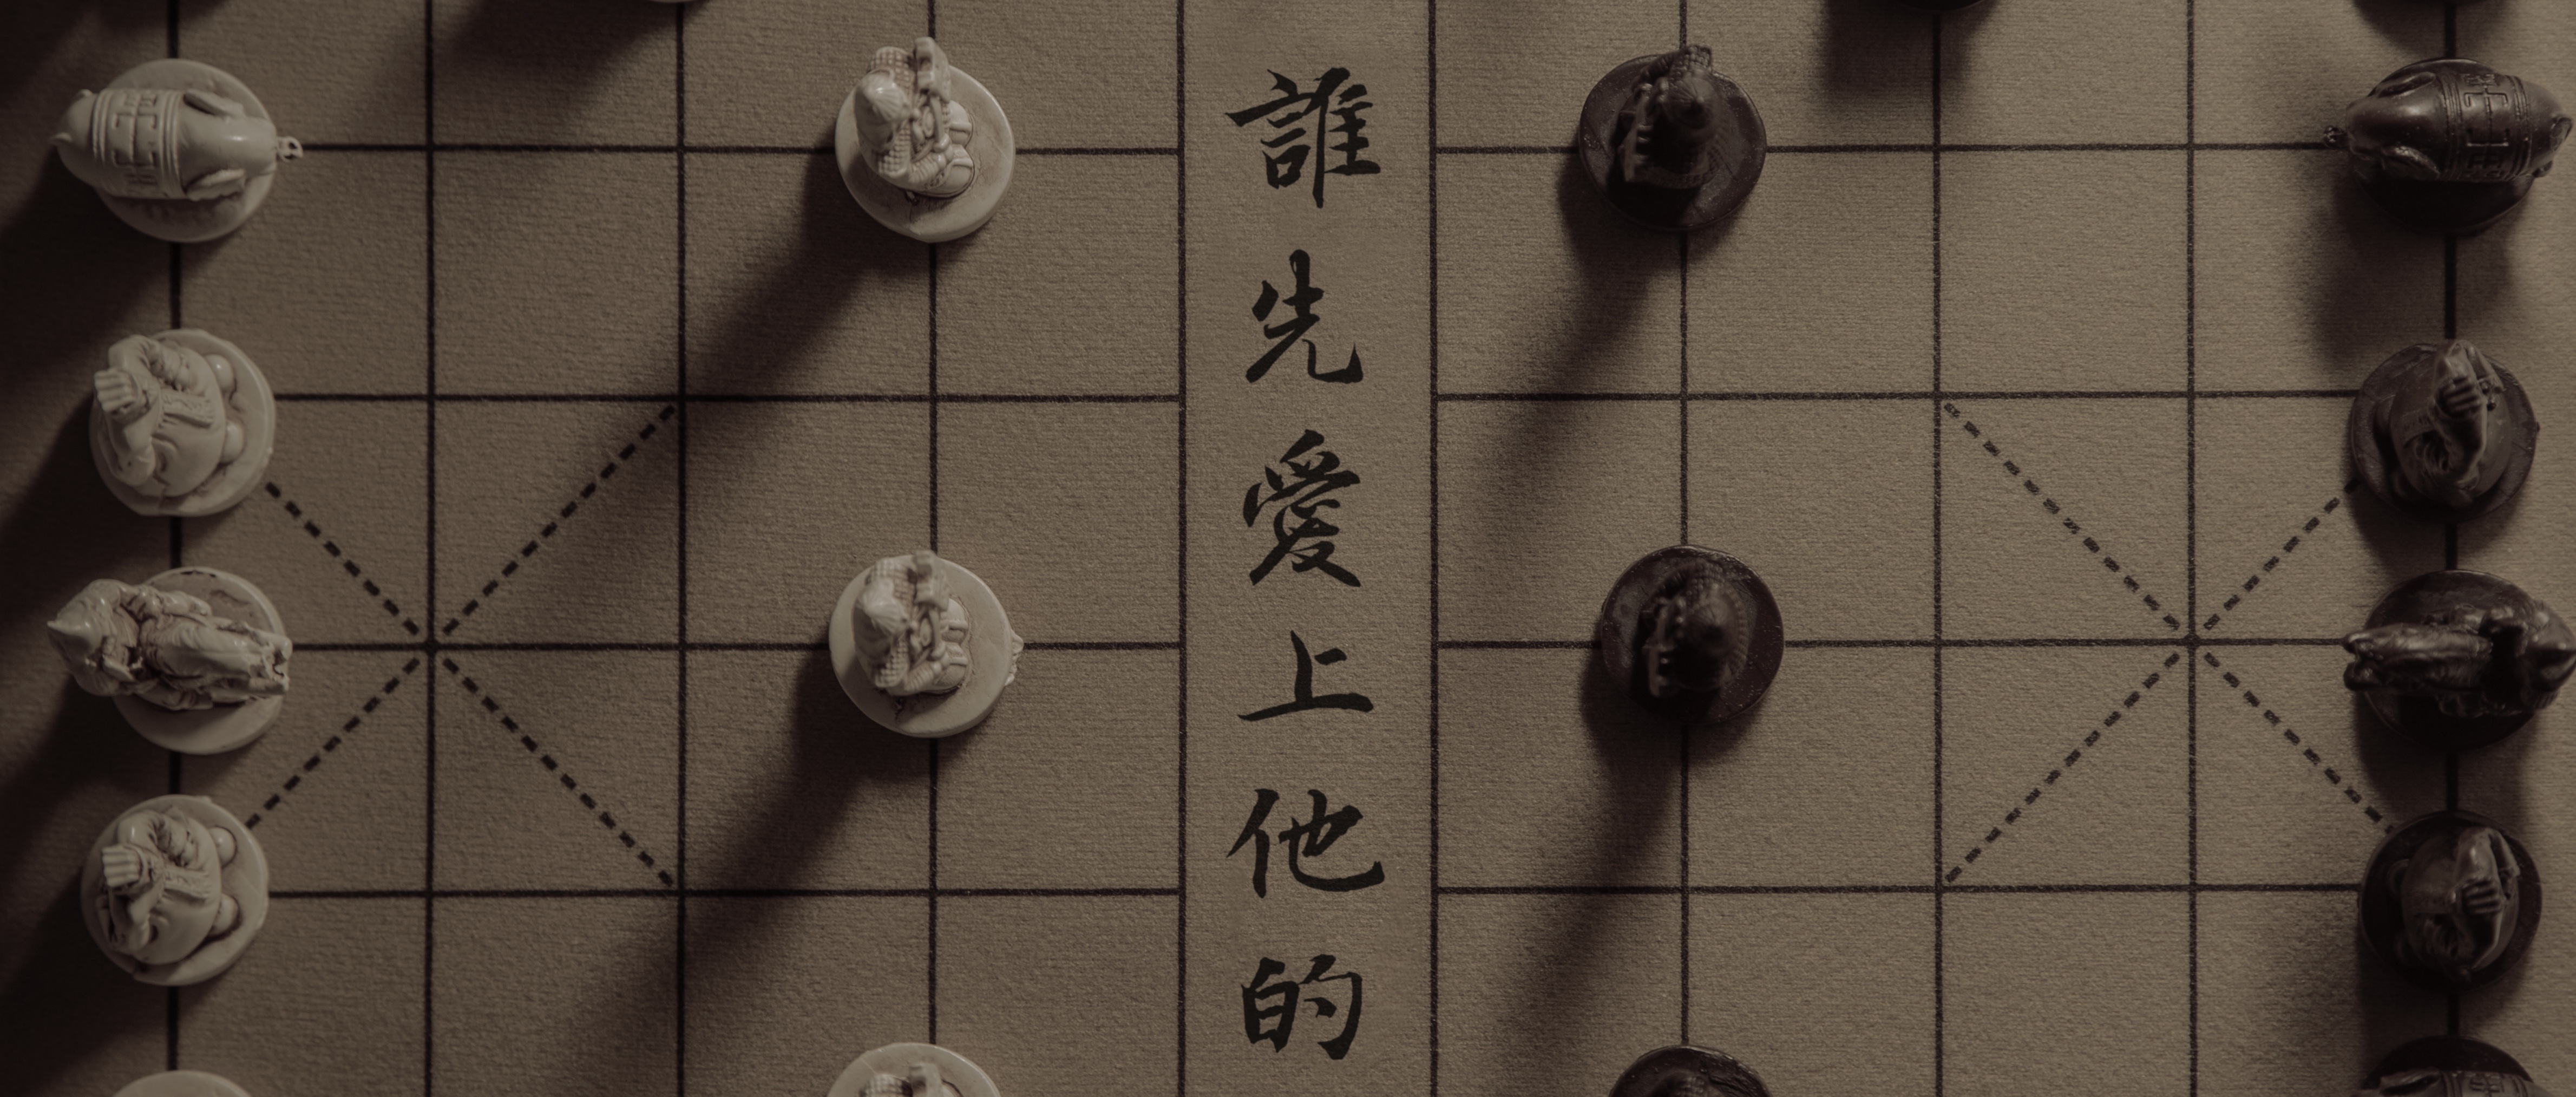 誰先愛上他的